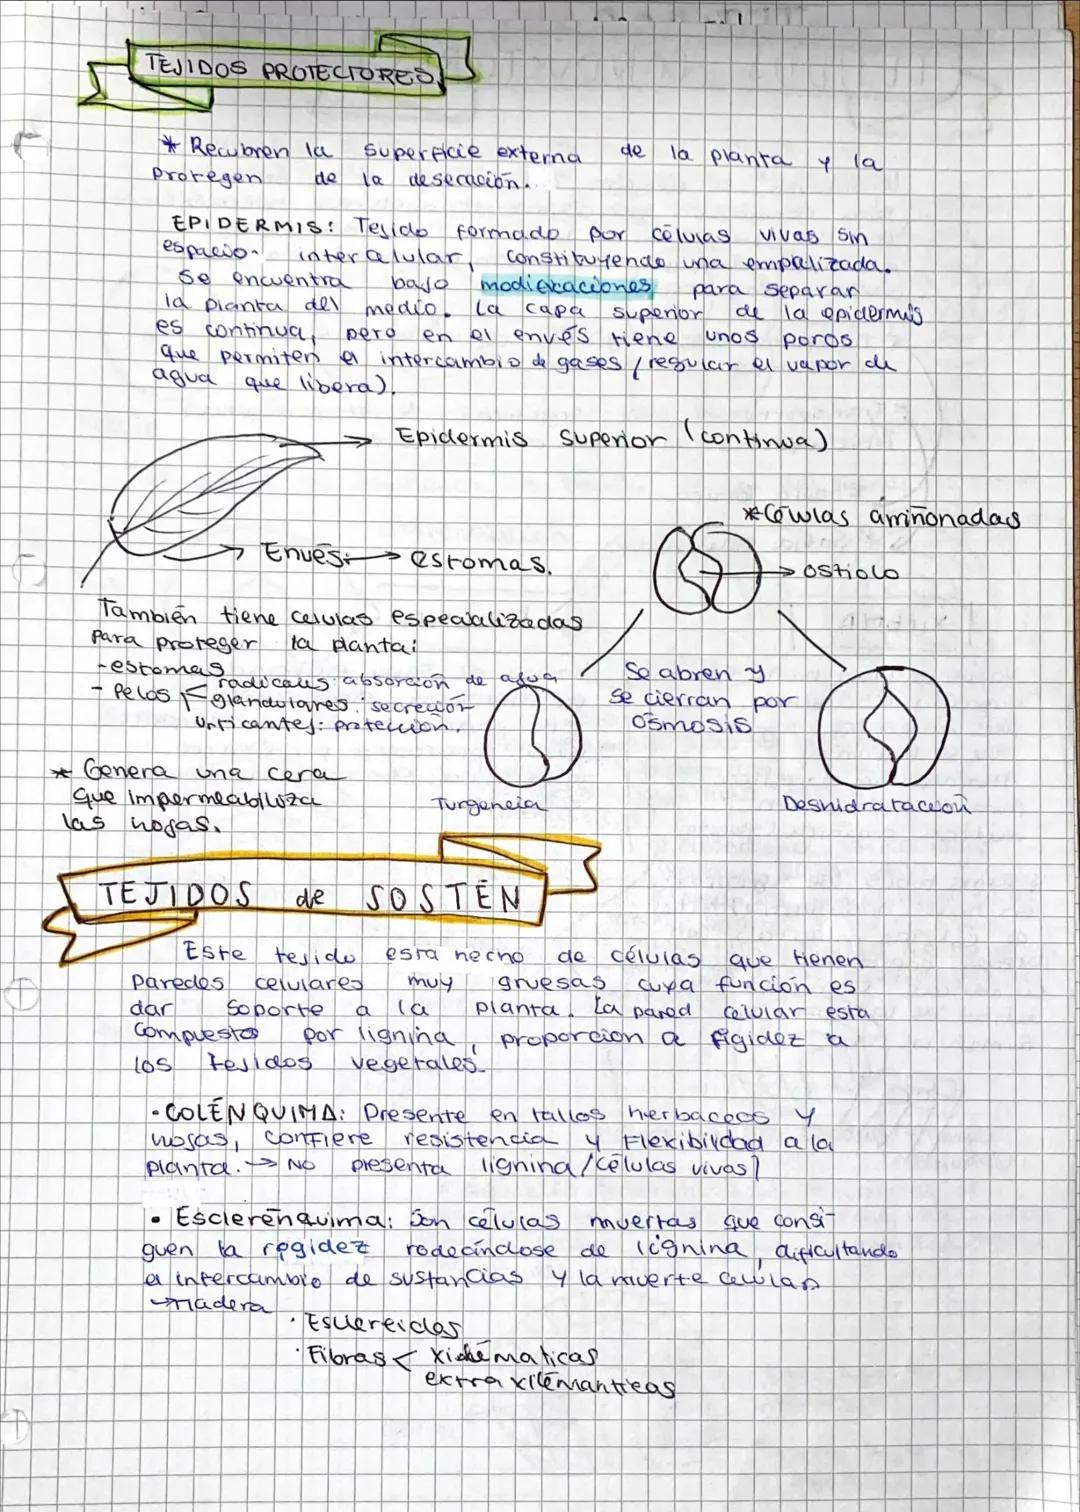 TEJIDOS PROTECTORES
* Recubren la superficie externa de la planta y la
protegen de la desecación.
EPIDERMIS: Tejido formado por células vivas sin
espacio intercelular, constituyendo una empalizada.
Se encuentra bajo modificaciones para separar
la planta del medio. La capa superior de la epidermis
es continua, pero en el envés tiene unos poros
que permiten el intercambio de gases (regular el vapor de
agua que libera).
Epidermis superior (continua)
*Células arriñonadas
Envés: → estomas.
ostiolo
También tiene celulas especializadas
para proteger la planta:
-estomas
- Pelos radicales: absorción de agua
glandulares: secreción
Urticantes: protección.
Se abren y
se cierran por
ósmosis
* Genera una cera
que impermeabiliza
las hojas.
Turgencia
Deshidratación
TEJIDOS de SOSTÉN
Este tejido esta hecho de células que tienen
paredes celulares muy gruesas cuya función es
dar soporte a la planta. La pared celular esta
compuesto por lignina, proporciona rigidez a
los tejidos vegetales.
·COLÉNQUIMA: Presente en tallos herbaceos y
hojas, confiere resistencia y flexibilidad a la
planta. → No presenta lignina (células vivas)
• Esclerénquima: Son células muertas que consi-
guen la regidez rodeándose de lignina, dificultando
el intercambio de sustancias y la muerte celular
→Madera
· Esclereidas
· Fibras < xilemáticas
extraxilemanticas